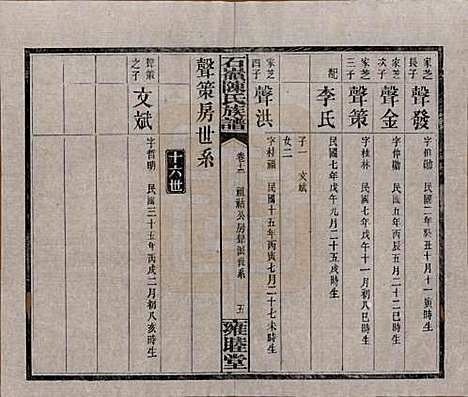 家芝長子 聲發 字伸勛 民國二年癸丑十月十一寅時生
家芝次子 聲金 字仲勝 民國五年丙辰五月二十二巳時生
家芝三子 聲策 字桂林 民國七年戊午十一月初八巳時生
配 李氏 民國七年戊午元月二十五亥時生
子一 文斌
女二
家芝四子 聲洪 字桂福 民國十五年丙寅七月二十七未時生
石嶺陳氏族譜 卷十二 公房 世系 五 雍睦堂
聲策房世系
十六世
聲策之子 文斌 字哲明 民國三十五年丙戌二月初八亥時生